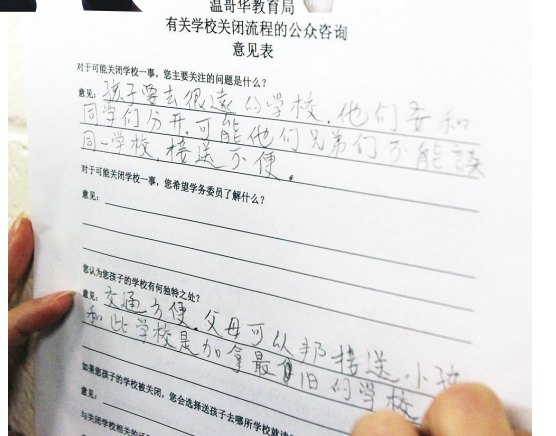 温哥华教育局
有关学校关闭流程的公众咨询
意见表
对于可能关闭学校一事，您主要关注的问题是什么？
意见：孩子要去很遠的学校，他们要和
同学们分开，可能他们兄弟们不能読
同一学校，接送不便。
对于可能关闭学校一事，您希望学务委员了解什么？
意见：
您认为您孩子的学校有何独特之处？
意见：交通方便，父母可以帮接送小孩
和此学校是加拿最旧的学校
如果您孩子的学校被关闭，您会选择送孩子去哪所学校就读
意见：
与关闭学校相关的